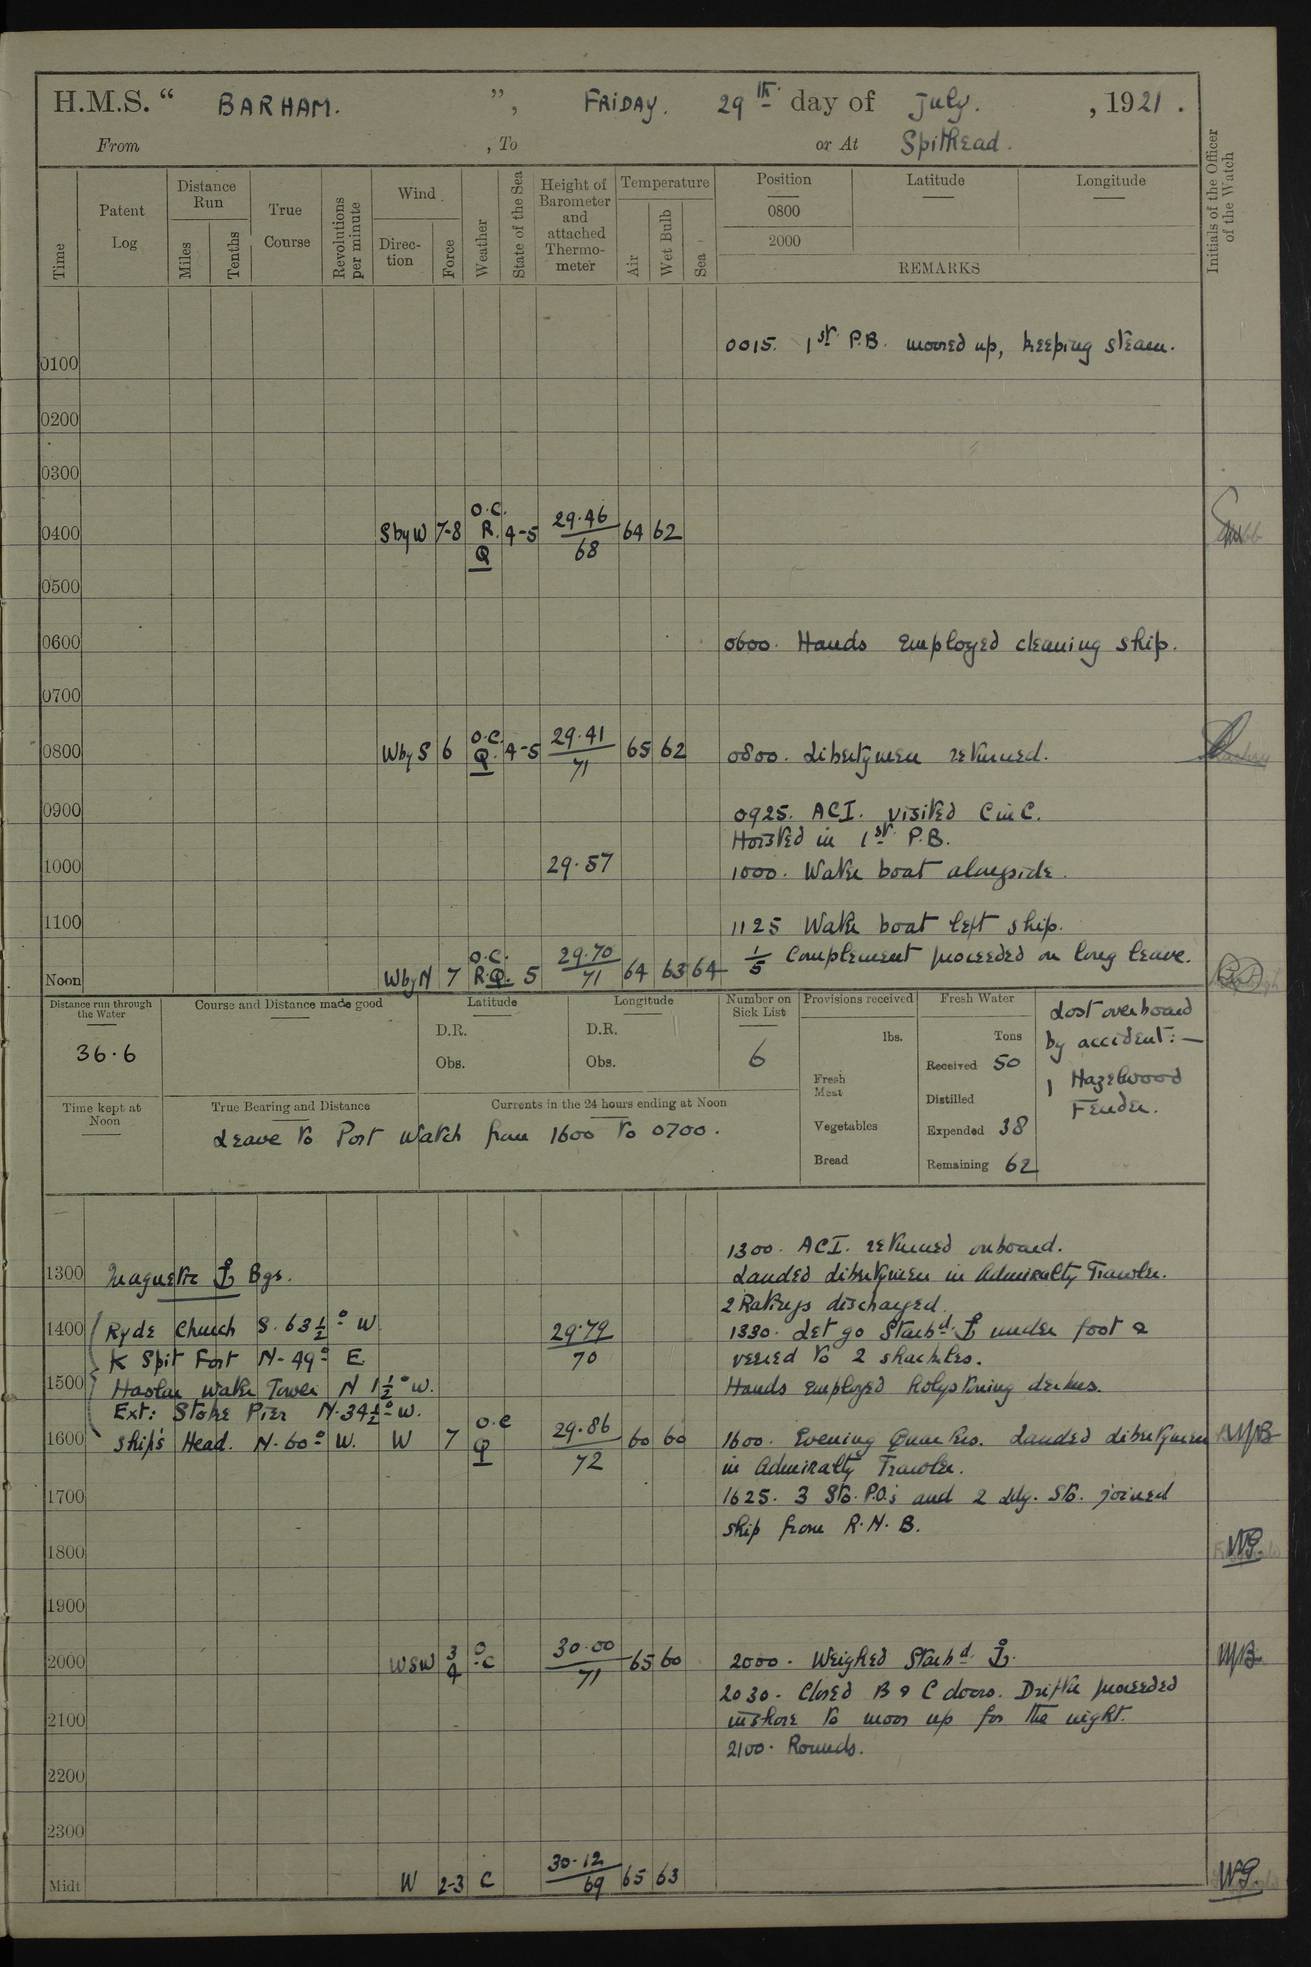 H.M.S. “ BARHAM. ”, FRIDAY. 29th day of July. , 1921.
From , To or At Spithead.
Time
Patent Log
Distance Run
Miles
Tenths
True Course
Revolutions per minute
Wind
Direc-tion
Force
Weather
State of the Sea
Height of Barometer and attached Thermo-meter
Temperature
Air
Wet Bulb
Sea
Position
0800
2000
Latitude
Longitude
REMARKS
Initials of the Officer of the Watch
0015. 1st P.B. moored up, keeping steam.
0100
0200
0300
0400 S by W 7-8 O.C. R. Q 4-5 29.46 68 64 62
0500
0600 0600. Hands employed cleaning ship.
0700
0800 W by S 6 O.C. Q. 4-5 29.41 71 65 62 0800. Libertymen returned.
0900 0925. ACI. visited C in C.
Hoisted in 1st P.B.
1000 29.57 1000. Water boat alongside.
1100 1125 Water boat left ship.
1/5 Complement proceeded on long leave.
Noon W by N 7 O.C. R.Q. 5 29.70 71 64 63 64
Distance run through the Water
36.6
Course and Distance made good
Latitude
D.R.
Obs.
Longitude
D.R.
Obs.
Number on Sick List
6
Provisions received
lbs.
Fresh Meat
Vegetables
Bread
Fresh Water
Tons
Received 50
Distilled
Expended 38
Remaining 62
Lost overboard
by accident:—
1 Hazelwood
Fender.
Time kept at Noon
True Bearing and Distance
Currents in the 24 hours ending at Noon
Leave to Port Watch from 1600 to 0700.
1300. ACI. returned onboard.
1300 Magnetic ⚓ Bgs. Landed libertymen in Admiralty Trawler.
2 Ratings discharged.
1400 Ryde Church S. 63½° W 29.79 70 1330. Let go Starbd. ⚓ under foot &
K Spit Fort N. 49° E. veered to 2 shackles.
1500 Haslar Water Tower N 1½° W. Hands employed holystoning decks.
Ext: Stoke Pier N. 34½° W.
1600 Ship's Head. N. 60° W. W 7 O.C Q 29.86 72 60 60 1600. Evening Quarters. Landed libertymen
in Admiralty Trawler.
1700 1625. 3 Sto. P.O.'s and 2 Ldg. Sto. joined
ship from R.N.B.
1800 WG.
1900
2000 WSW 3/4 O.C 30.00 71 65 60 2000. Weighed Starbd. ⚓.
2030. Closed B & C doors. Drifter proceeded
2100 inshore to moor up for the night.
2100. Rounds.
2200
2300
Midt W 2-3 C 30.12 69 65 63 WG.